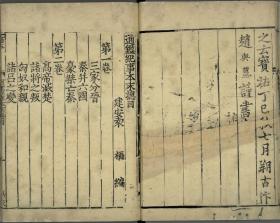 之云寶祐丁巳秋七月朔古汴
趙與 謹書
通鑑紀事本末總目
建安袁 樞 編
第一卷
三家分晉
秦并六國
豪傑亡秦
第二卷
高帝滅楚
諸將之叛
匈奴和親
諸呂之變